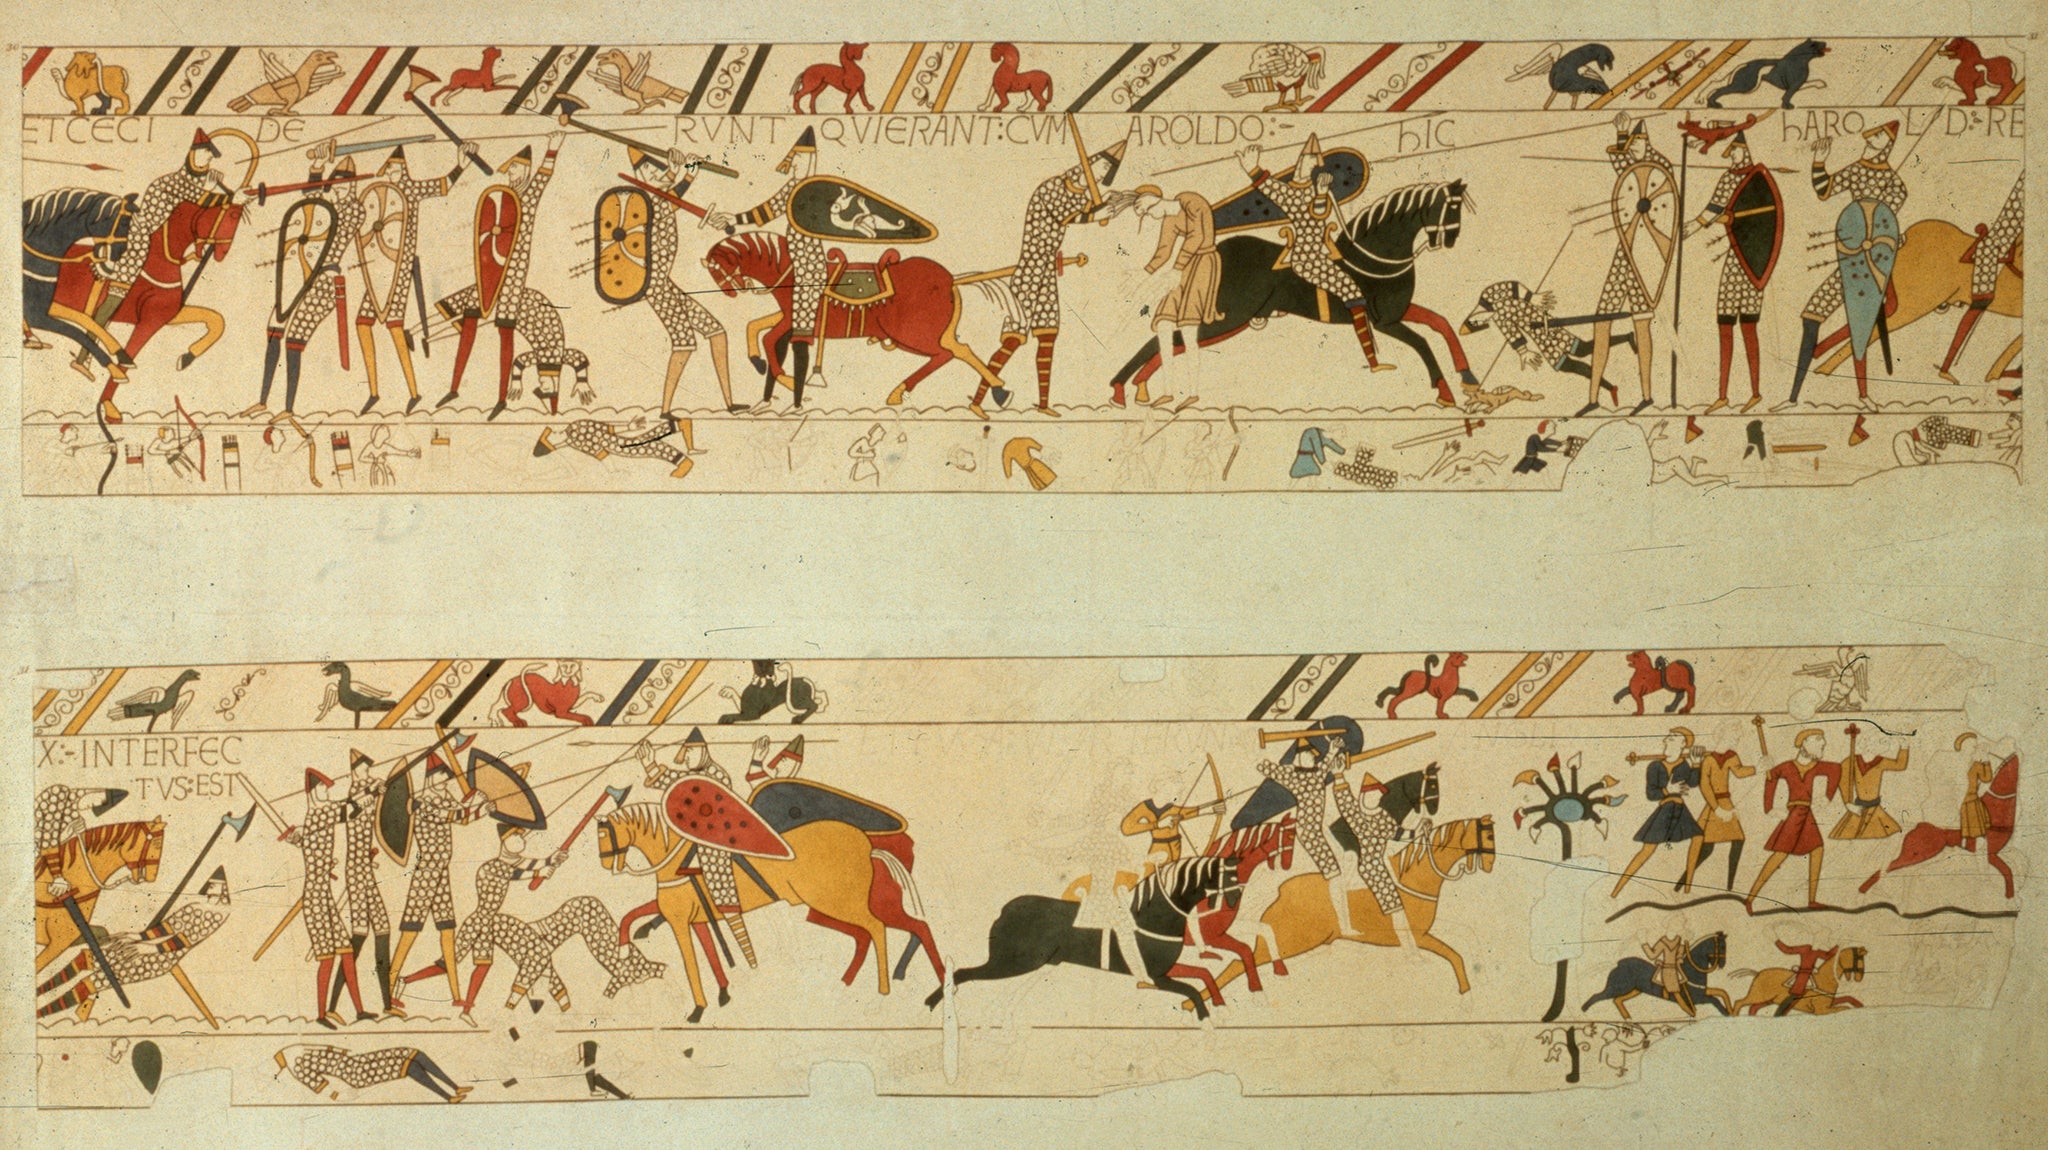 ET CECI DE RVNT QVIERANT: CVM AROLDO:- hIC hARO L D: RE
X:- INTERFEC
TVS: EST